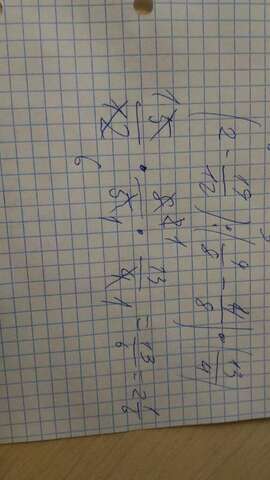 (2 - 19/12) : (9/8 - 4/8) · 13/4
5/12 · 8/5 · 13/4 = 13/6 = 2 1/6